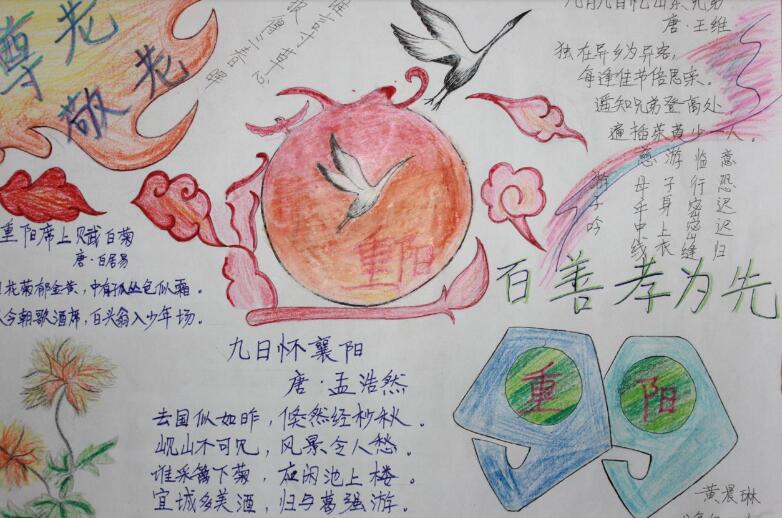 尊老
敬老
谁言寸草心
报得三春晖
九月九日忆山东兄弟
唐·王维
独在异乡为异客，
每逢佳节倍思亲。
遥知兄弟登高处，
遍插茱萸少一人。
游子吟
慈母手中线
游子身上衣
临行密密缝
意恐迟迟归
重阳
重阳席上赋白菊
唐·白居易
花菊郁金黄，中有孤丛色似霜。
今朝歌酒席，白头翁入少年场。
百善孝为先
九日怀襄阳
唐·孟浩然
去国似如昨，倏然经杪秋。
岘山不可见，风景令人愁。
谁采篱下菊，应闲池上楼。
宜城多美酒，归与葛强游。
重阳
黄晨琳